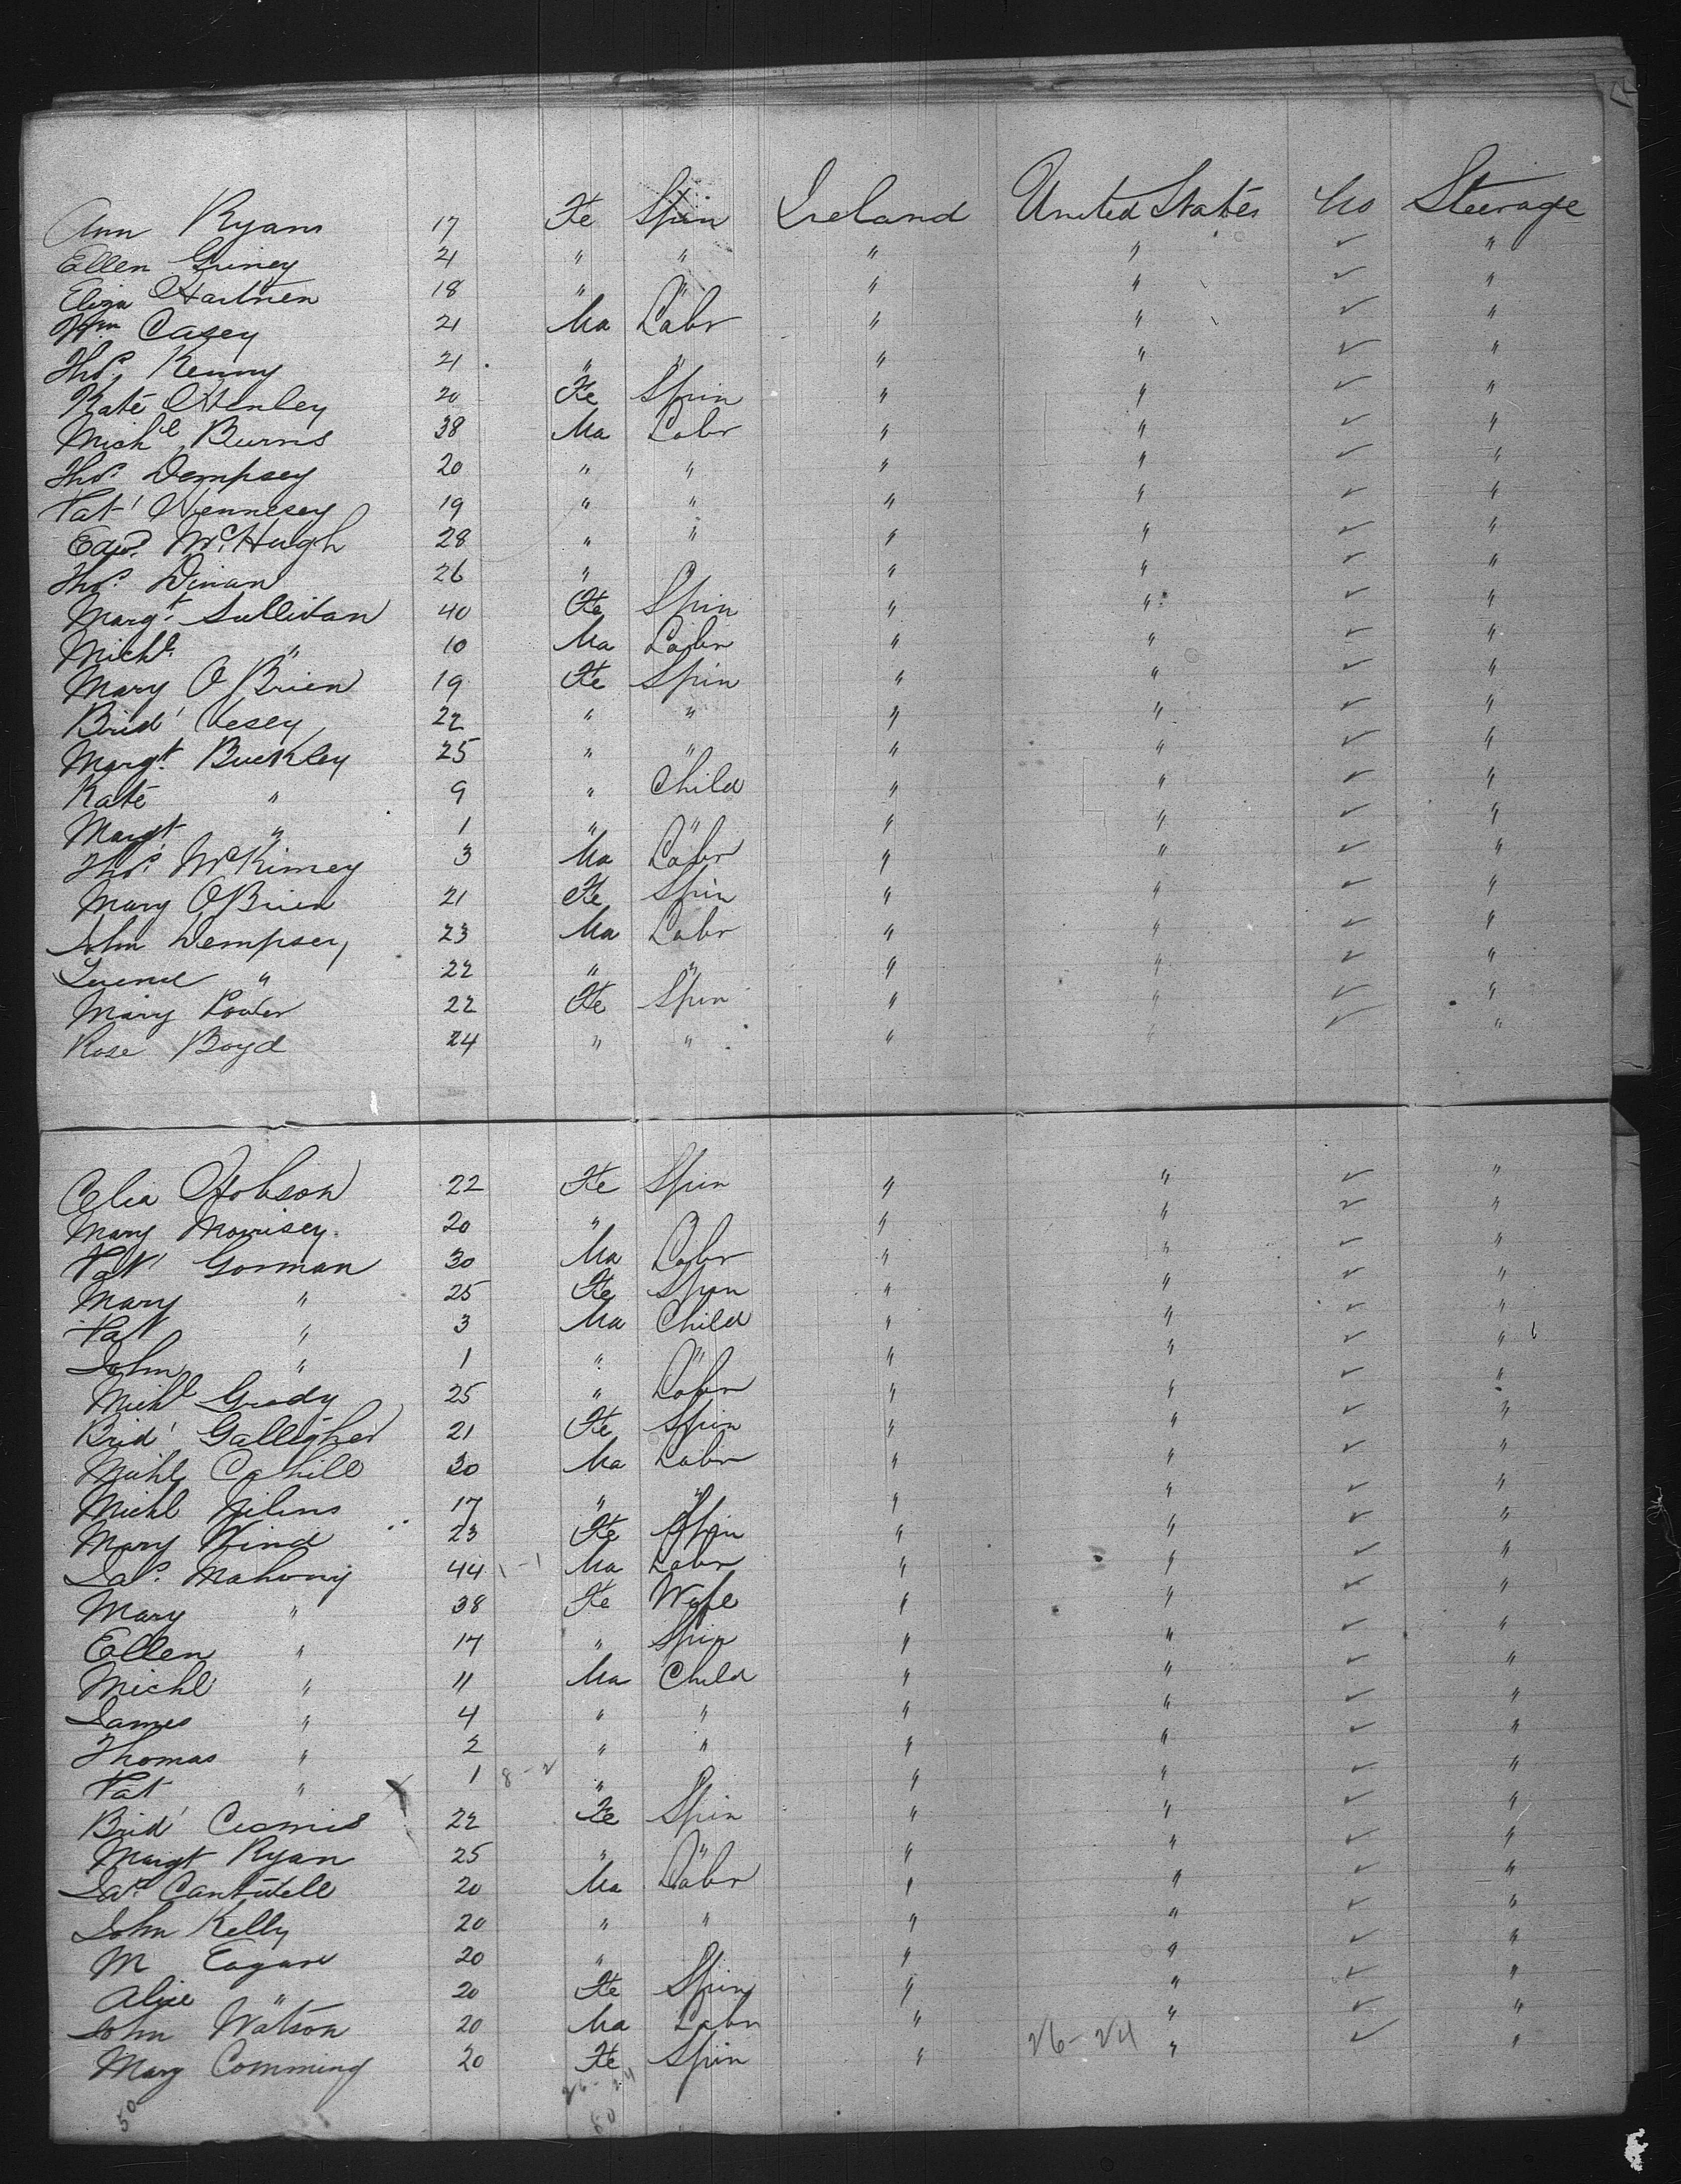 Ann Ryans 17 Fe Spin Ireland United States No Steerage
Ellen Guiney 21 " " " " ✓ "
Eliza Hartnen 18 " " " " ✓ "
Wm Casey 21 Ma Labr " " ✓ "
Thos. Kenny 21 " " " " ✓ "
Kate Henley 20 Fe Spin " " ✓ "
Michl Burns 38 Ma Labr " " ✓ "
Thos. Dempsey 20 " " " " ✓ "
Pat' Hennesey 19 " " " " ✓ "
Edwd. McHugh 28 " " " " ✓ "
Thos. Dinan 26 " " " ✓ "
Margt. Sullivan 40 Fe Spin " " ✓ "
Michl. " 10 Ma Labr " " ✓ "
Mary O Brien 19 Fe Spin " " ✓ "
Brid' Vesey 22 " " " " ✓ "
Margt. Buckley 25 " " " " ✓ "
Kate " 9 " Child " " ✓ "
Margt " 1 " " " " ✓ "
Thos. McKimey 3 Ma Labr " " ✓ "
Mary OBrien 21 Fe Spin " " ✓ "
John Dempsey 23 Ma Labr " " ✓ "
" 22 " " " " ✓ "
Mary Power 22 Fe Spin " " ✓ "
Rose Boyd 24 " " " " ✓ "
Celia Hobson 22 Fe Spin " " ✓ "
Mary Morrisey 20 " " " " ✓ "
Pat' Gorman 30 Ma Labr " " ✓ "
Mary " 25 Fe Spin " " ✓ "
Pat " 3 Ma Child " " ✓ "
John " 1 " " " " ✓ "
Michl Grady 25 " Labr " " ✓ "
Brid' Gallegher 21 Fe Spin " " ✓ "
Michl Cahill 30 Ma Labr " " ✓ "
Michl 17 " " " " ✓ "
Mary Wind 23 Fe Spin " " ✓ "
Jas. Mahony 44 1-1 Ma Labr " " ✓ "
Mary " 38 Fe Wife " " ✓ "
Ellen " 14 " Spin " " ✓ "
Michl " 11 Ma Child " " ✓ "
James " 4 " " " " ✓ "
Thomas " 2 " " " " ✓ "
Pat " X 1 8-2 " " " " ✓ "
Brid' 22 Fe Spin " " ✓ "
Margt Ryan 25 " " " " ✓ "
Jas. Cantwell 20 Ma Labr " " ✓ "
John Kelly 20 " " " " ✓ "
M Eagan 20 " " " ✓ "
Alice " 20 Fe Spin " " ✓ "
John Watson 20 Ma Labr " " ✓ "
Mary Comming 20 Fe Spin " 26-24 " ✓ "
50 26-24